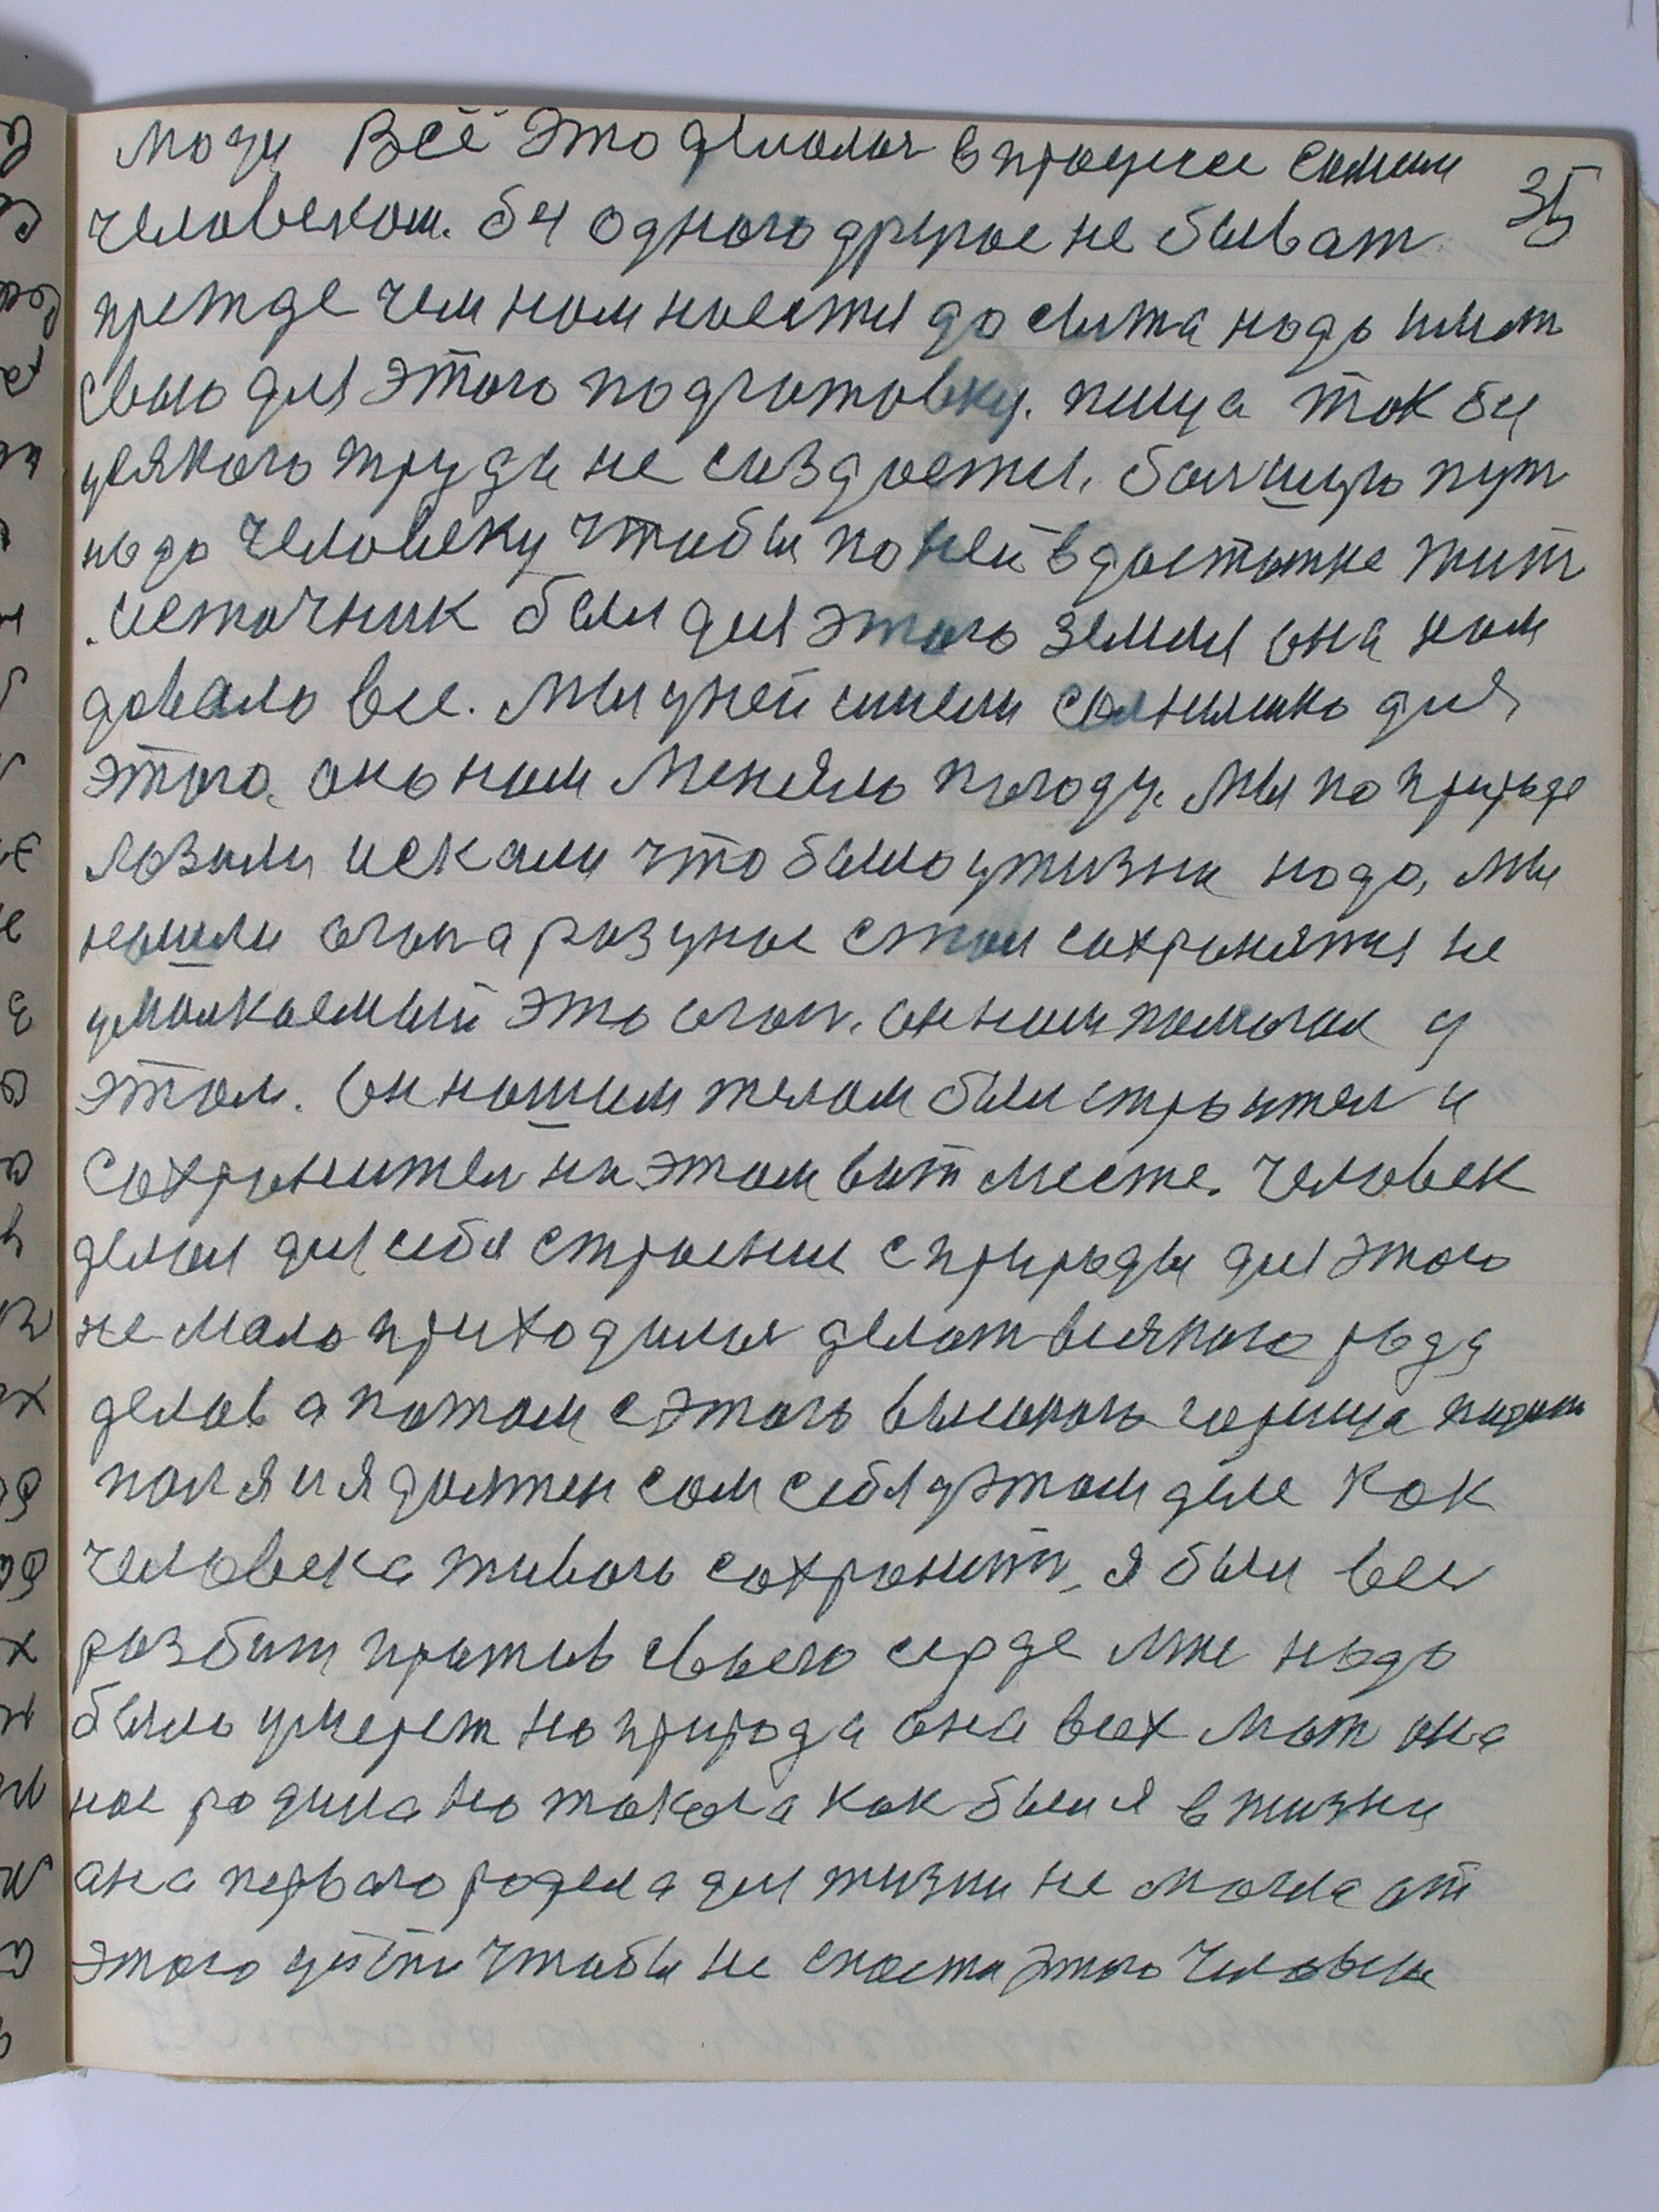 моду Всё это делалося в процессе самим
человеком. бч одного другое не быват 35
прежде чем нам наестся до сыта надо имет
свою для этого подготовку. пища так бч
усякого труда не создается, болшую пут
надо человеку чтобы по ней в достатке жит
. источник был для этого земля она нам
довала все. Мы у ней имели солнышко для
этого. оно нам меняло погоду. Мы по природе
лазили искали что было у жизни надо, мы
нашли огон а разуное стал сохранятся не
умолкаемый это огон. он нам помогал у
этом. Он нашим телом был строител и
сохранител на этом вот месте. Человек
делал для себя строение с природы для этого
не мало приходился делат всякого рода
делов а потом с этого высокого горища
пол я и я должен сам себя у этом деле как
человека живого сохранит, я был вес
разбит против своего серде мне надо
было умерет но природа она всех мат она
нас родила но такога как был я в жизни
она первого родила для жизни не могла от
этого уйти чтобы не спасти этого человека